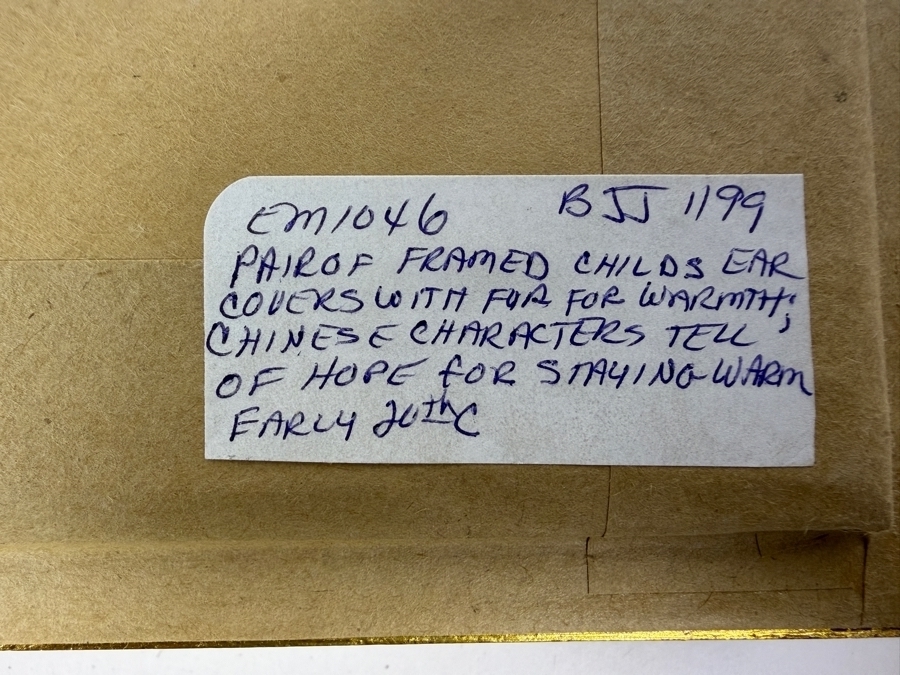 EM1046 BJJ 1199
PAIR OF FRAMED CHILDS EAR
COVERS WITH FUR FOR WARMTH;
CHINESE CHARACTERS TELL
OF HOPE FOR STAYING WARM
EARLY 20thC